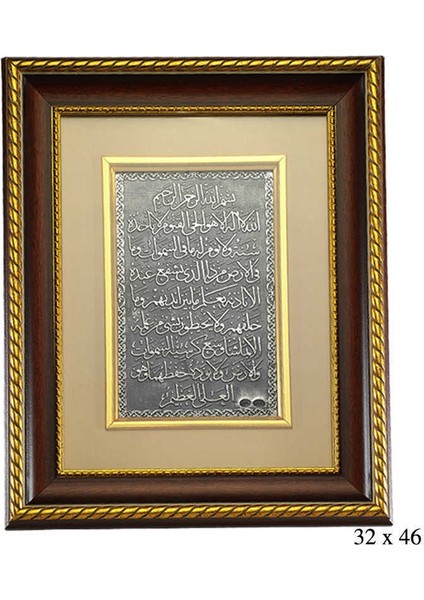 بسم الله الرحمن الرحيم
الله لا اله الا هو الحي القيوم لا تاخذه
سنة ولا نوم له ما في السموات وما
في الارض من ذا الذي يشفع عنده
الا باذنه يعلم ما بين ايديهم وما
خلفهم ولا يحيطون بشيء من علمه
الا بما شاء وسع كرسيه السموات
والارض ولا يؤده حفظهما وهو
العلي العظيم
32 x 46